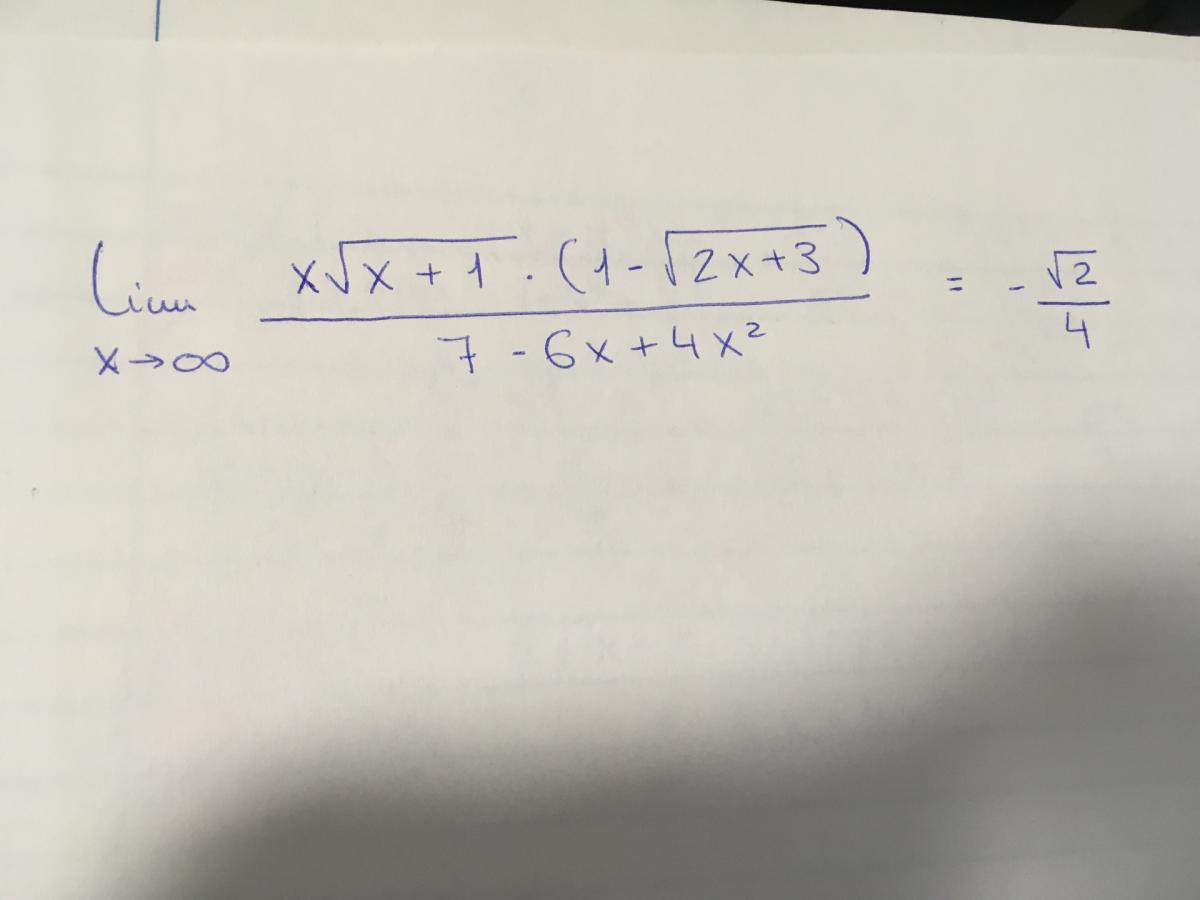 lim x→∞ x√(x + 1) · (1 - √(2x + 3)) / (7 - 6x + 4x²) = - √2 / 4